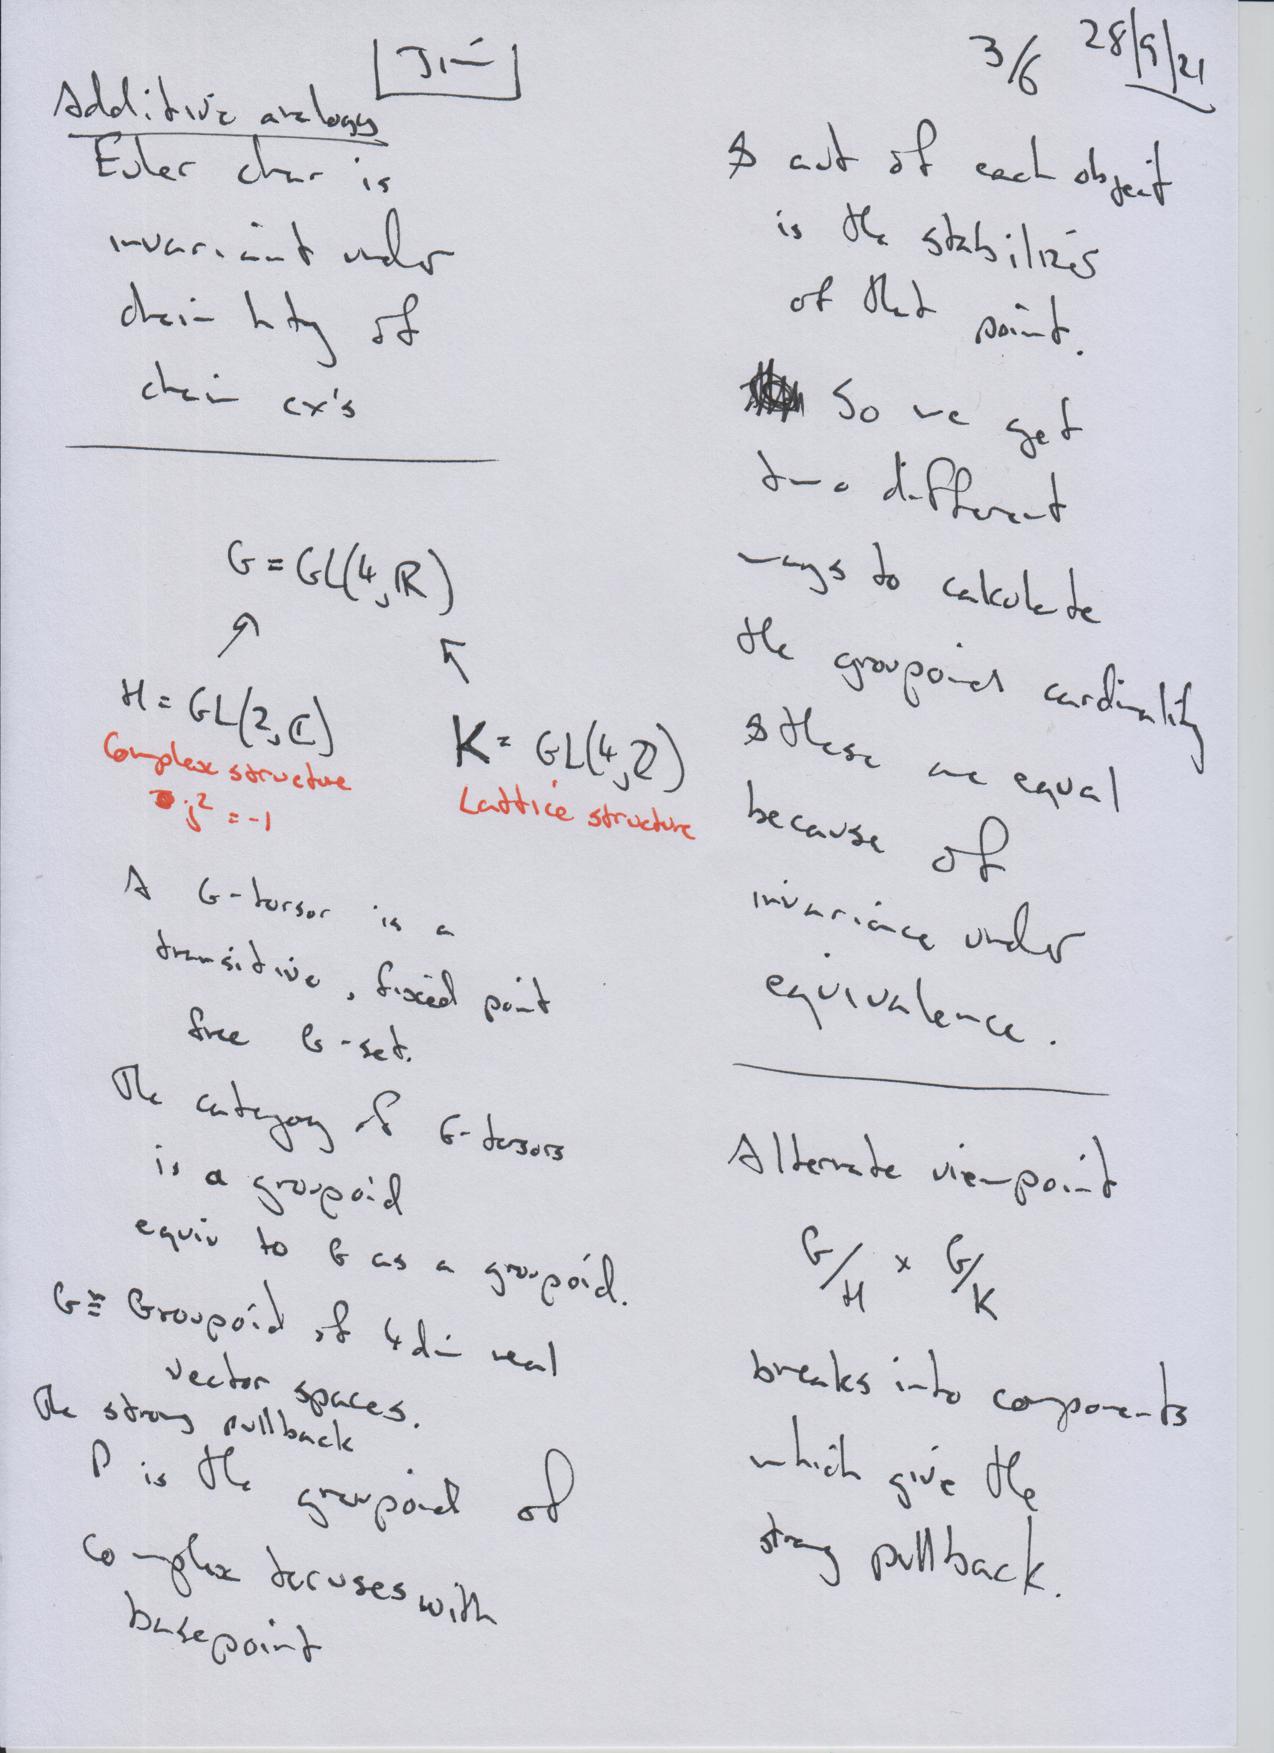 Jim
3/6 28/9/21
Additive analogy
Euler char is
invariant under
chain hty of
chain cx's
G = GL(4,ℝ)
H = GL(2,ℂ)
Complex structure
j² = -1
K = GL(4,ℤ)
Lattice structure
A G-torsor is a
transitive, fixed point
free G-set.
The category of G-torsors
is a groupoid
equiv to G as a groupoid.
G ≅ Groupoid of 4 dim real
vector spaces.
The strong pullback
P is the groupoid of
complex toruses with
basepoint
& aut of each object
is the stabilizer
of that point.
So we get
two different
ways to calculate
the groupoid cardinality
& these are equal
because of
invariance under
equivalence.
Alternate viewpoint
G/H × G/K
breaks into components
which give the
strong pullback.